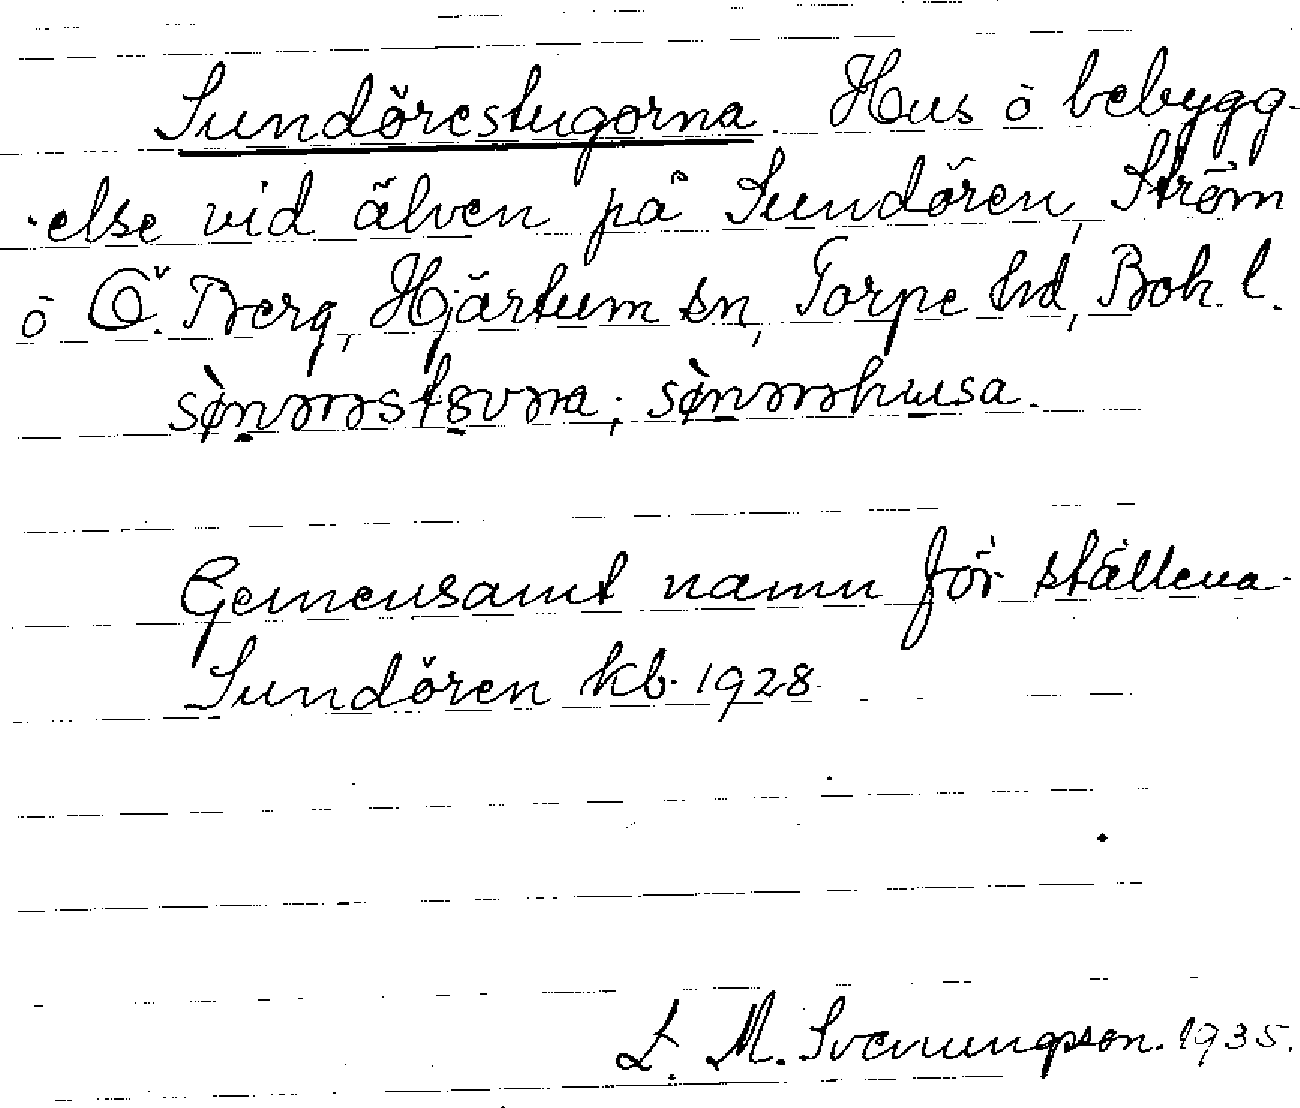 Sundörestugorna. Hus o bebygg-
else vid älven på Sundören, Ström
o Ö. Berg, Hjärtum sn, Torpe hd, Boh. l.

Gemensamt namn för ställena
Sundören kb. 1928
L. M. Svenungsson. 1935.